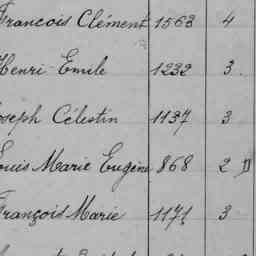 François Clément 1563 4
Henri Emile 1232 3.
Joseph Célestin 1137 3
Louis Marie Eugène 868 2 D
François Marie 1171 3